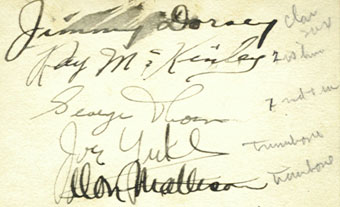 Jimmy Dorsey clar sax
Ray McKinley
George Thow
Joe Yukl trombone
Don Matteson trombone